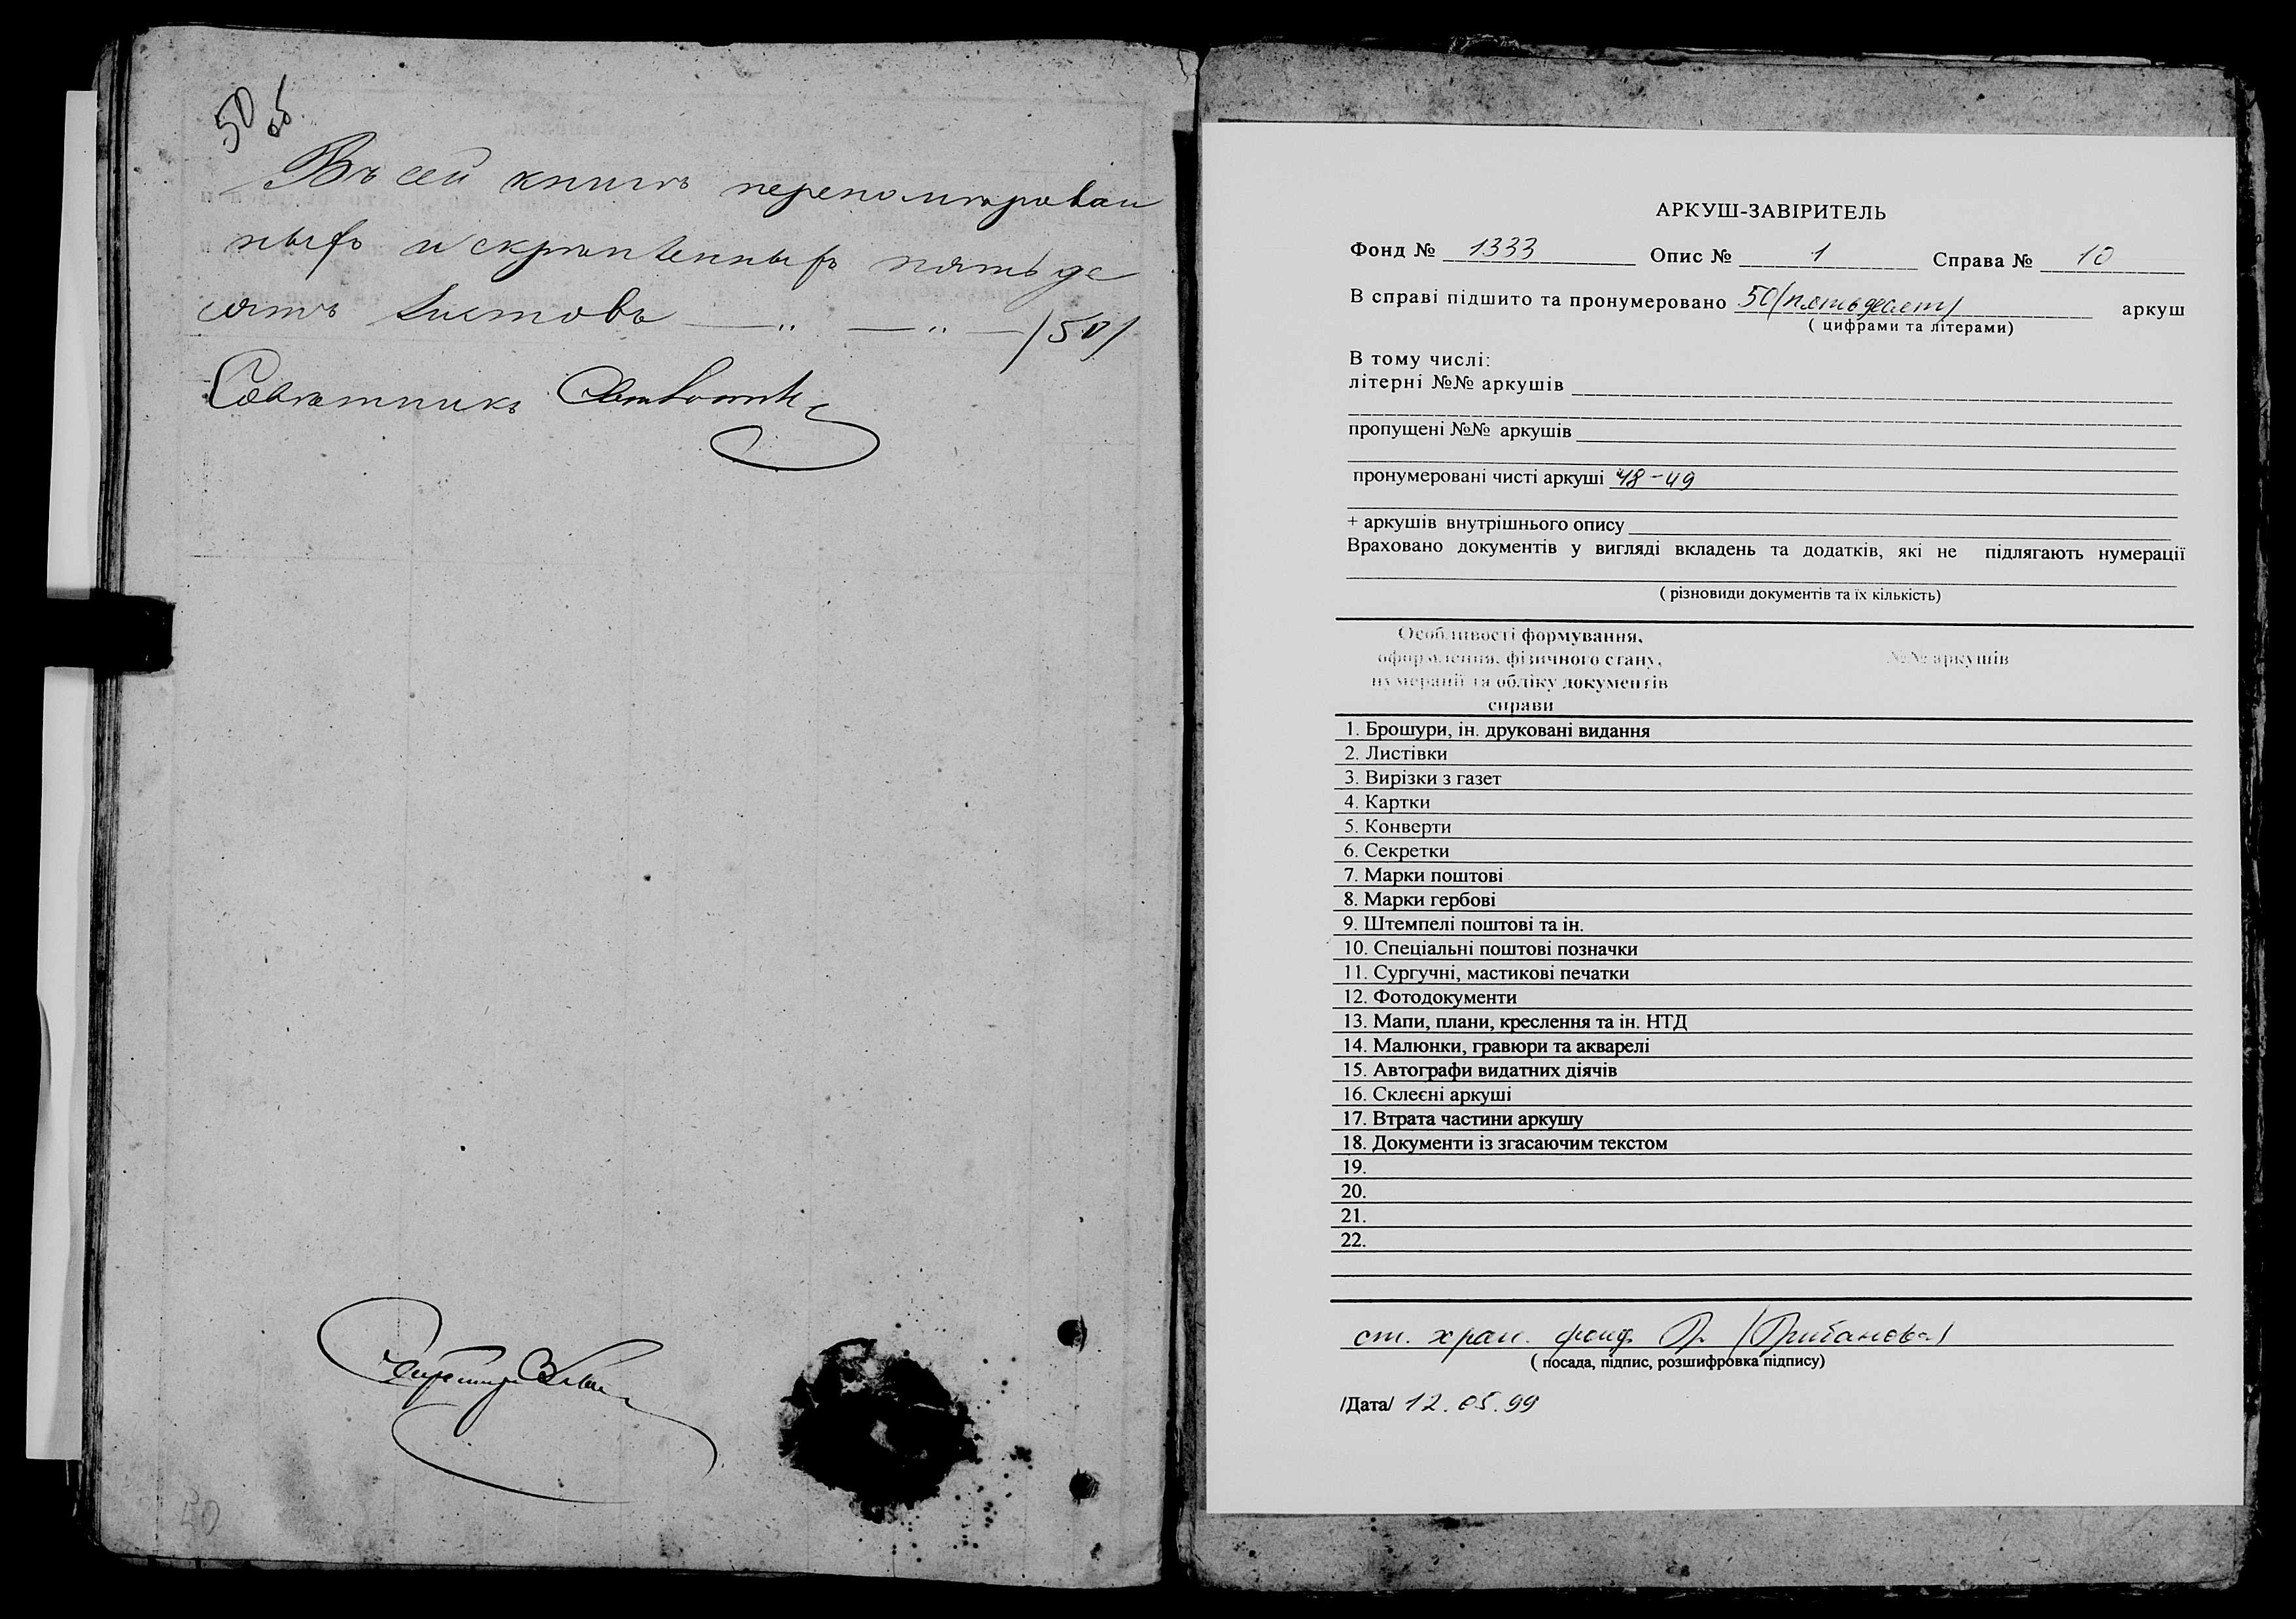 50 об.
Въ сей книгѣ перенумерован
ныхъ и скрѣпленныхъ пятьде
сятъ листовъ — „ — „ — /50/
Совѣтникъ
Секретарь
50
АРКУШ-ЗАВІРИТЕЛЬ
Фонд № 1333 Опис № 1 Справа № 10
В справі підшито та пронумеровано 50 (пятьдесят) аркуш
( цифрами та літерами)
В тому числі:
літерні №№ аркушів
пропущені №№ аркушів
пронумеровані чисті аркуші 48-49
+ аркушів внутрішнього опису
Враховано документів у вигляді вкладень та додатків, які не підлягають нумерації
( різновиди документів та їх кількість)
Особливості формування,
оформлення, фізичного стану, №№ аркушів
нумерації та обліку документів
справи
1. Брошури, ін. друковані видання
2. Листівки
3. Вирізки з газет
4. Картки
5. Конверти
6. Секретки
7. Марки поштові
8. Марки гербові
9. Штемпелі поштові та ін.
10. Спеціальні поштові позначки
11. Сургучні, мастикові печатки
12. Фотодокументи
13. Мапи, плани, креслення та ін. НТД
14. Малюнки, гравюри та акварелі
15. Автографи видатних діячів
16. Склеєні аркуші
17. Втрата частини аркушу
18. Документи із згасаючим текстом
19.
20.
21.
22.
ст. хран. фонд.
( посада, підпис, розшифровка підпису)
/Дата/ 12.05.99